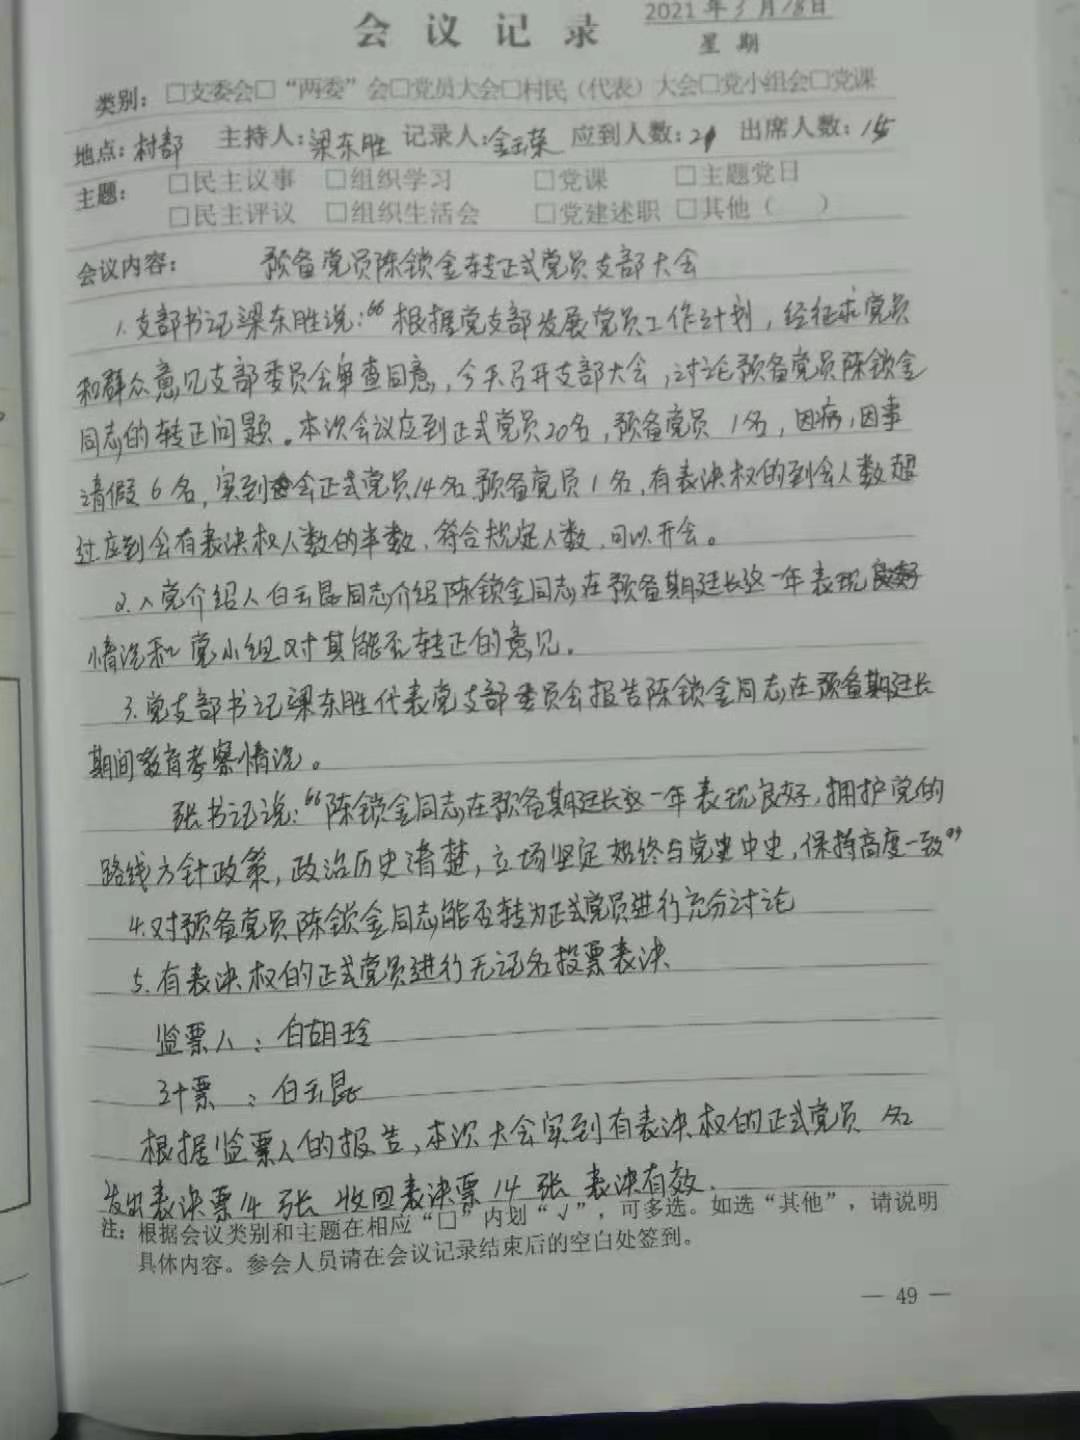 2021年3月18日
会议记录
星期
类别：□支委会□“两委”会□党员大会□村民（代表）大会□党小组会□党课
地点：村部 主持人：梁东胜 记录人：金玉荣 应到人数：21 出席人数：15
主题： □民主议事 □组织学习 □党课 □主题党日
□民主评议 □组织生活会 □党建述职 □其他（ ）
会议内容： 预备党员陈锁金转正式党员支部大会
1.支部书记梁东胜说：“根据党支部发展党员工作计划，经征求党员
和群众意见支部委员会审查同意，今天召开支部大会，讨论预备党员陈锁金
同志的转正问题。本次会议应到正式党员20名，预备党员 1名，因病，因事
请假6名，实到会正式党员14名预备党员1名，有表决权的到会人数超
过应到会有表决权人数的半数、符合规定人数，可以开会。
2.入党介绍人白玉昆同志介绍陈锁金同志在预备期延长这一年表现良好
情况和党小组对其能否转正的意见。
3.党支部书记梁东胜代表党支部委员会报告陈锁金同志在预备期延长
期间教育考察情况。
张书记说：“陈锁金同志在预备期延长这一年表现良好，拥护党的
路线方针政策，政治历史清楚，立场坚定始终与党史中史，保持高度一致”
4.对预备党员陈锁金同志能否转为正式党员进行充分讨论
5.有表决权的正式党员进行无记名投票表决
监票人：白胡玲
计票 ：白玉昆
根据监票人的报告，本次大会实到有表决权的正式党员 名
发出表决票14张 收回表决票14张 表决有效.
注：根据会议类别和主题在相应“□”内划“√”，可多选。如选“其他”，请说明
具体内容。参会人员请在会议记录结束后的空白处签到。
— 49 —